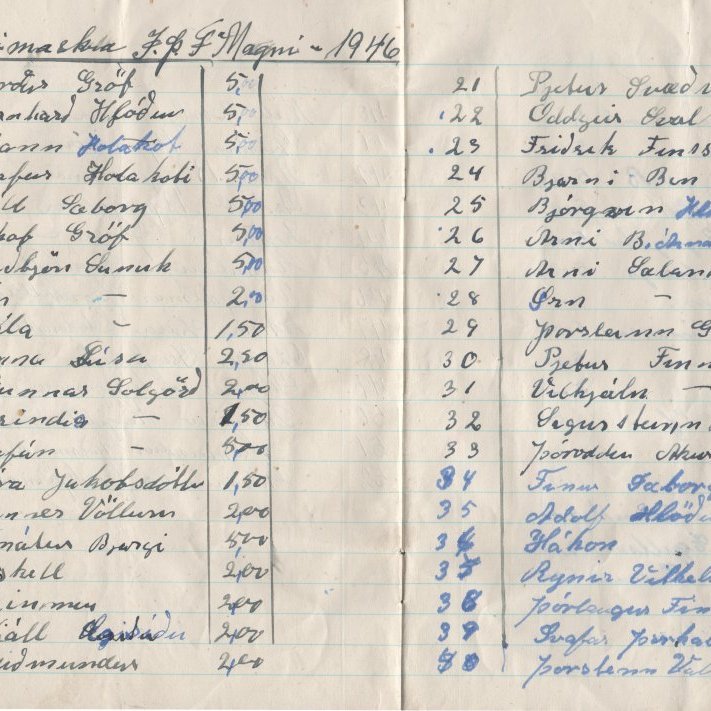 maskra I.þ F. Magni - 1946
Gröf 5,00
nhard Hlöðum 5,00
ann Holakot 5,00
afur Holakoti 5,00
Saborg 5,00
Gröf 5,00
dbjörn Sunuk 5,00
— 2,00
la — 1,50
nna Lísa 2,50
unnar Solgörd 2,00
rindis — 1,50
fán — 5,00
ra Jakobsdóttir 1,50
nnes Völlum 2,00
mátus Bjargi 5,00
skell 2,00
inmar 2,00
jáll 2,00
idmundur 2,00
21 Pjetur
22 Oddgeir
23 Fridrik Finss
24 Bjarni Ben
25 Björgvin
26 Arni
27 Arni
28 Örn —
29 Þorsteinn G
30 Pjetur Finn
31 Vilhjálm —
32 Sigursteinn
33 Þóroddur Akur
34 Finnur Saborg
35 Adolf Hlöðu
36 Hákon
37 Reynir Vilhel
38 Þórlaugur Fin
39 Svafar Þorha
Þorsteinn Val